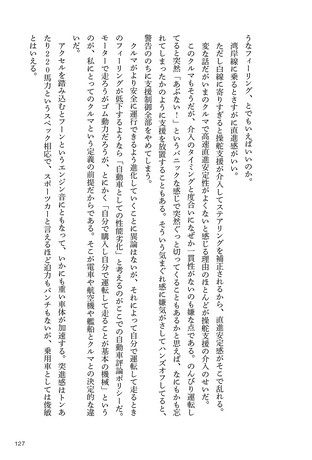 うなフィーリング、とでもいえばいいのか。
湾岸線に乗るとさすがに直進感がいい。
ただし白線に寄りすぎると操舵支援が介入してステアリングを補正されるから、直進安定感がそこで乱れる。
変な話だがいまのクルマで高速直進安定性がよくないと感じる理由のほとんどが操舵支援の介入のせいだ。
このクルマもそうだが、介入のタイミングと度合いになぜか一貫性がないのも嫌な点である。のんびり運転し
てると突然「あぶない！」というパニックな感じで突然ぐっと切ってくることもあるかと思えば、なにもかも忘
れてしまったかのように支援を放置することもある。そういう気まぐれ感に嫌気がさしてハンズオフしてると、
警告ののちに支援制御全部をやめてしまう。
クルマがより安全に運行できるよう進化していくことに異論はないが、それによって自分で運転して走るとき
のフィーリングが低下するようなら「自動車としての性能劣化」と考えるのがここでの自動車評論ポリシーだ。
モーターで走ろうがゴム動力だろうが、とにかく「自分で購入し自分で運転して走ることが基本の機械」という
のが、私にとってのクルマという定義の前提だからである。そこが電車や航空機や艦船とクルマとの決定的な違
いだ。
アクセルを踏み込むとフーンというエンジン音にともなって、いかにも重い車体が加速する。突進感はトンあ
たり220馬力というスペック相応で、スポーツカーと言えるほど迫力もパンチもないが、乗用車としては俊敏
とはいえる。
127